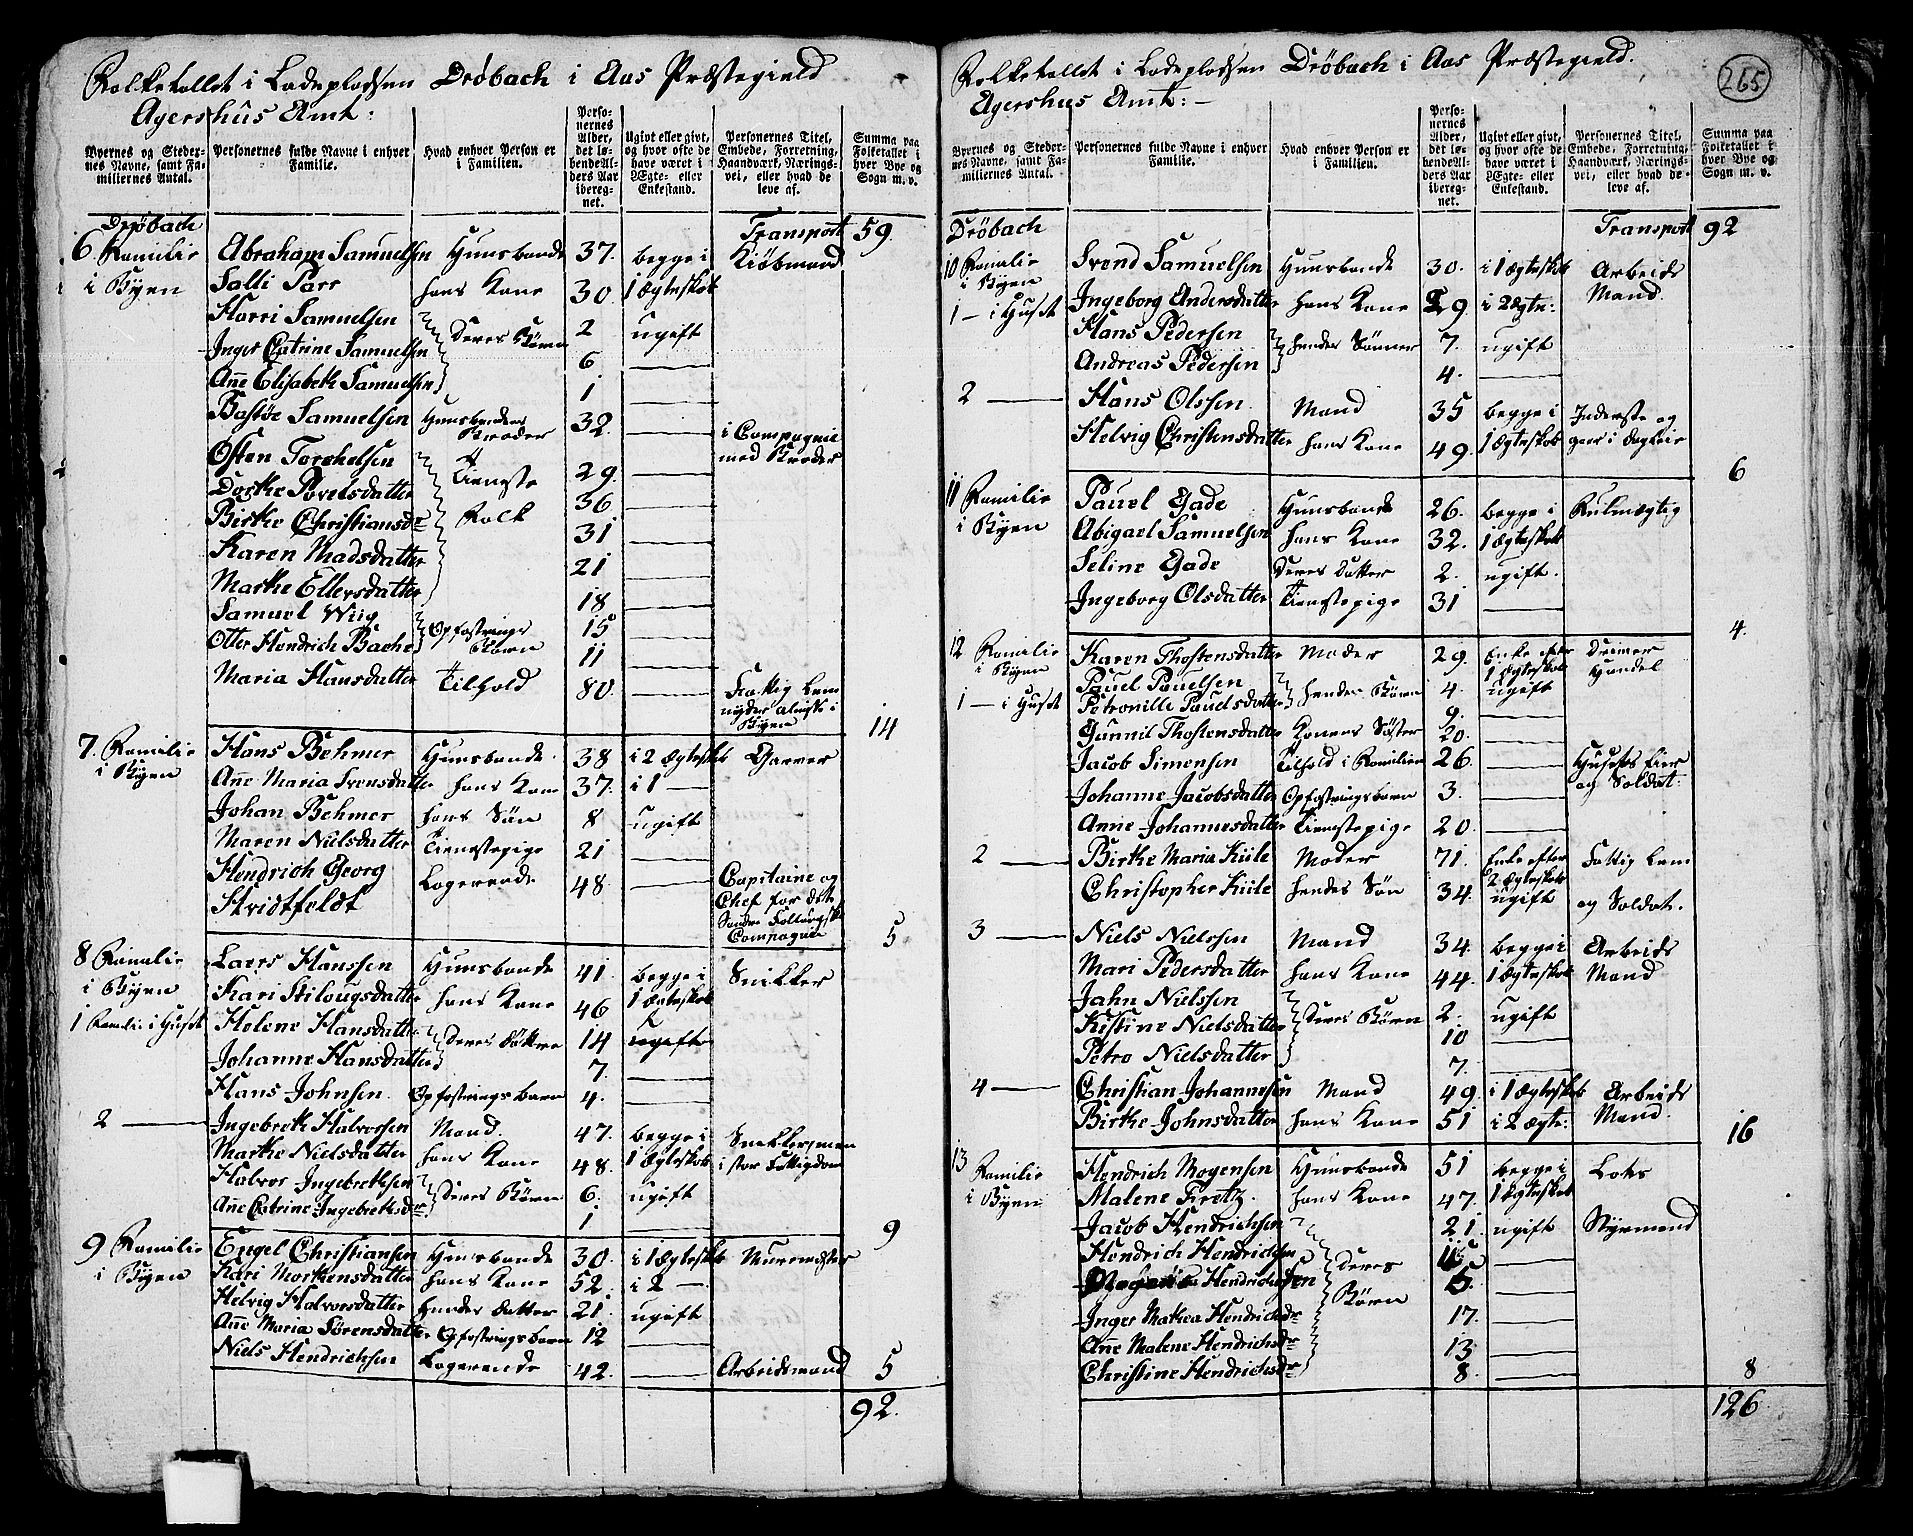 Folketallet i Ladepladsen Dröbach i Aas Præstegield
Agershuus Amt:
Byernes og Stedernes Navne, samt Familiernes Antal.
Personernes fulde Navne i enhver Familie.
Hvad enhver Person er i Familien.
Personernes Alder, det løbende Alders Aar iberegnet.
Ugivt eller givt, og hvor ofte de have været i Ægte- eller Enkestand.
Personernes Titel, Embede, Forretning, Haandværk, Næringsvei, eller hvad de leve af.
Summa paa Folketallet i hver Bye og Sogn m. v.
Dröbach Transport 59.
6. Familie Abraham Samuelsen Huusbonde 37. begge i Kiöbmand
i Byen Salli Parr hans Kone 30. 1 Ægteskab
Harri Samuelsen Deres Börn 2 ugift
Inger Catrine Samuelsen 6 —
Añe Elisabeth Samuelsen 1 —
Bastöe Samuelsen Huusbondens Broder 32. — i Compagnie med Broder
Osten Torchelsen Tieneste 29. —
Dorthe Povelsdatter 36 —
Birthe Christiansdr Folk 31 —
Karen Madsdatter 21 —
Marthe Ellersdatter 18 —
Samuel Wiig Opfostrings 15 —
Otter Hendrich Bache Börn 11 —
Maria Hansdatter Tilhold 80. — Fattig Lem nyder almisse i Byen
14
7. Familie Hans Behmer Huusbonde 38 i 2 Ægteskab Garver
i Byen Añe Maria Svensdatter hans Kone 37. i 1 —
Johan Behmer hans Sön 8 ugift
Maren Nielsdatter Tienestepige 21 —
Hendrich Georg Logerende 48 — Capitaine og
Stridtfeldt Chef for det
Söndre Follougske
Compagnie 5
8 Familie Laers Hanssen Huusbonde 41. begge i Snikker
i Byen Kari Stilougsdatter hans Kone 46 1 Ægteskab
1 Familie i Huset Helene Hansdatter Deres Döttre 14 ugifte
Johanne Hansdatter 7. —
Hans Johnsen Opfostrings barn 4. —
2 — Ingebreth Halvorsen Mand. 47. begge i Snikker men
Marthe Nielsdatter hans Kone 48. 1 Ægteskab i stor Fattigdom
Halvor Ingebrethsen Deres Börn 6. ugift
Añe Catrine Ingebrethsdr 1 —
9
9 Familie Engel Christiansen Huusbonde 30. i 1 Ægteskab Muurmester
i Byen Kari Morthensdatter hans Kone 52. i 2 —
Helvig Halvorsdatter hendes Datter 21. ugift
Añe Maria Sörensdatter Opfostringsbarn 12 —
Niels Hendrichsen Logerende 42. — Arbeidsmand 5
92.
265
Folketallet i Ladepladsen Dröbach i Aas Præstegield.
Agershuus Amt: —
Byernes og Stedernes Navne, samt Familiernes Antal.
Personernes fulde Navne i enhver Familie.
Hvad enhver Person er i Familien.
Personernes Alder, det løbende Alders Aar iberegnet.
Ugivt eller givt, og hvor ofte de have været i Ægte- eller Enkestand.
Personernes Titel, Embede, Forretning, Haandværk, Næringsvei, eller hvad de leve af.
Summa paa Folketallet i hver Bye og Sogn m. v.
Dröbach Transport 92
10 Familie Svend Samuelsen Huusbonde 30. i 1 Ægteskab Arbeids
i Byen
1 — i Huset Ingeborg Andersdatter hans Kone 29. i 2 Ægte: Mand.
Hans Pedersen hendes Sönner 7. ugift
Andreas Pedersen 4. —
2 — Hans Olssen Mand 35 begge i Inderste og
Helvig Christensdatter hans Kone 49. 1 Ægteskab gaar i dagleie
6
11 Familie Pauel Gade Huusbonde 26. begge i Fulmægtig
i Byen Abigael Samuelsen hans Kone 32. 1 Ægteskab
Seline Gade Deres Datter 2. ugift.
Ingeborg Olsdatter Tienestepige 31 —
4.
12 Familie Karen Thostensdatter Moder 29. Enke efter 1 Ægteskab
i Byen Handel
1 — i Huset Pauel Pauelsen hendes Börn 4. ugift
Petronille Pauelsdatter 9. —
Gunnil Thostensdatter Konens Söster 20. —
Jacob Simensen Tilhold i Familien 26. — Husets Eier
Johanne Jacobsdatter Opfostringsbarn 3. — og Soldat.
Anne Johannesdatter Tienestepige 20. —
2 — Birthe Maria Kiile Moder 71. Enke efter 2 Ægteskab Fattig Lem
Christopher Kiile hendes Sön 34. ugift og Soldat.
3 — Niels Nielssen Mand 34. begge i Arbeids
Mari Pedersdatter hans Kone 44. 1 Ægteskab Mand
Jahn Nielssen Deres Börn 2. ugift
Kistine Nielsdatter 10 —
Petro Nielsdatter 7. —
4 — Christian Johannesen Mand 49. i 1 Ægteskab Arbeids
Birthe Johnsdatter hans Kone 51 i 2 Ægte: Mand.
16
13 Familie Hendrich Mogensen Huusbonde 51 begge i Lots
i Byen Malene Firetz. hans Kone 47. 1 Ægteskab
Jacob Hendrichsen 21. ugift Styrmand
Hendrich Hendrichsen Deres —
Hendrichsen Börn 5. —
Inger Mathea Hendrichsdr 17. —
Añe Malene Hendrichsdr 13 —
Christine Hendrichsdr 8. — 8
126